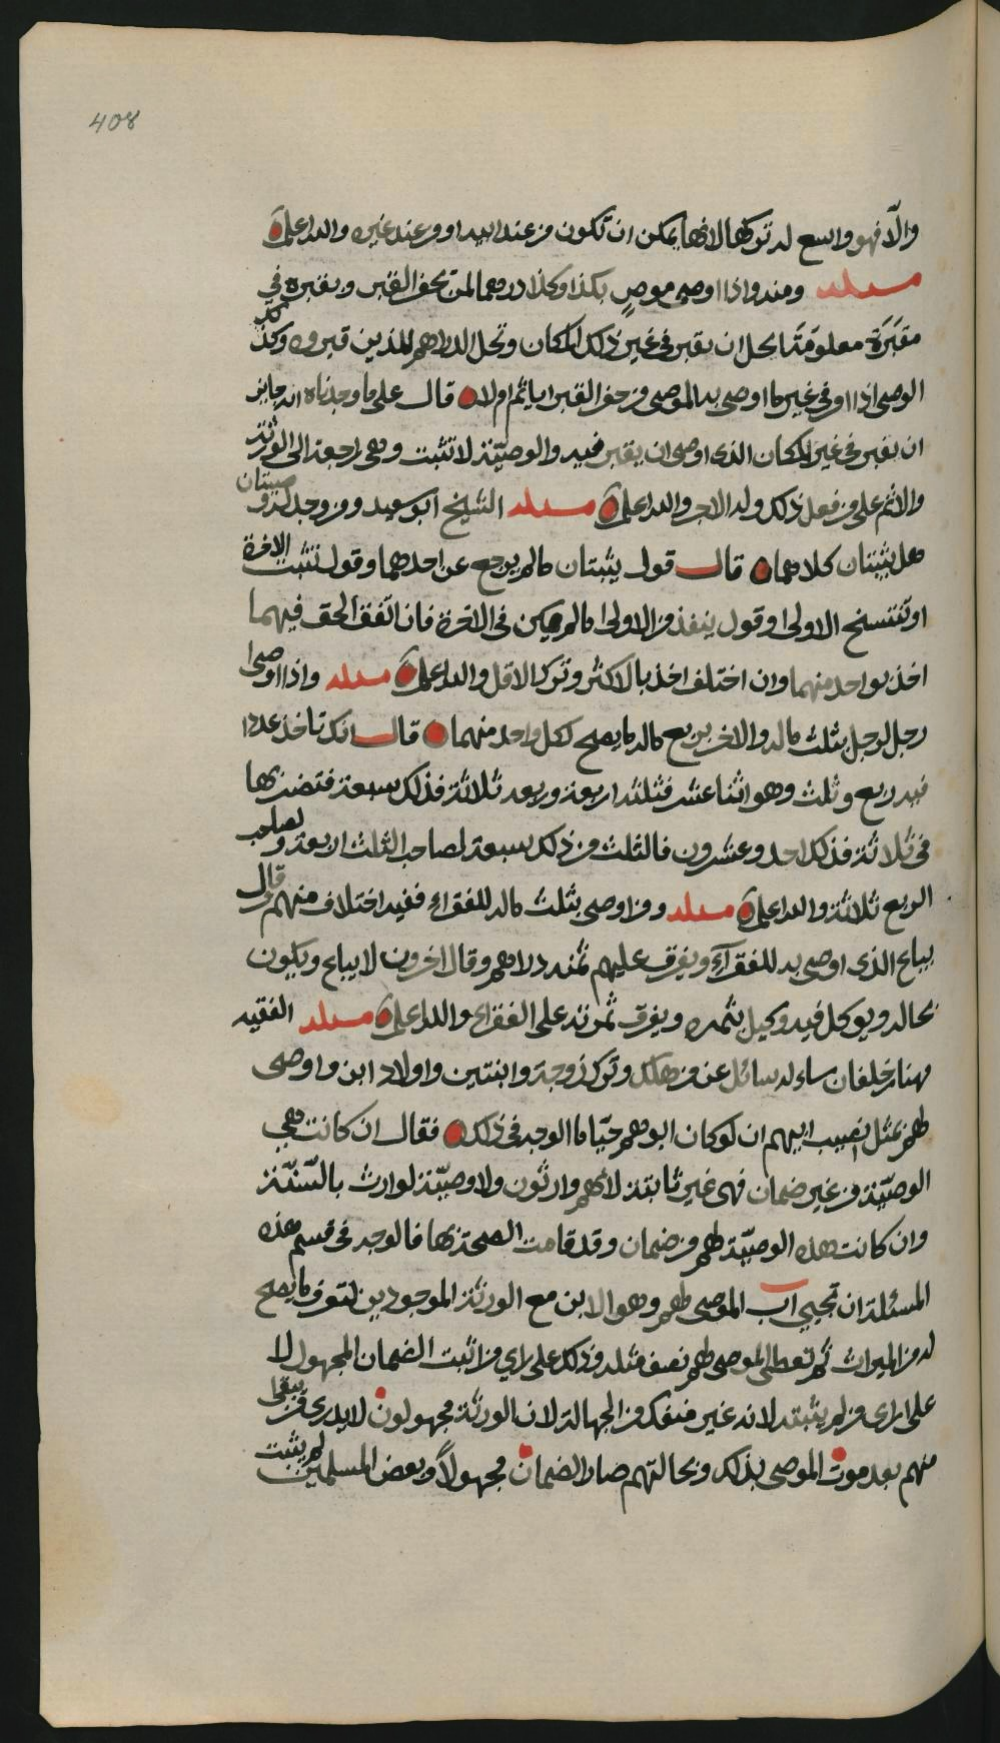 408
والّا فهو واسع له تركها لانها يمكن ان تكون من عند ابيه او من عند غيره والله اعلم
مسئلة ومنه واذا اوصى موصٍ بكذا وكذا درهما لمن يحفر القبر ويقبره في
مقبَرَة معلومَة ايحل ان يقبر في غير ذلك المكان وتحل الدراهم للذين قبروه وكذلك
الوصي اذا اوفى غير ما اوصى به الموصي من حفر القبر ايأثم ام لا قال على ما وجدناه انه جايز
ان يقبر في غير المكان الذي اوصى ان يقبر فيه والوصيّة لا تثبت وهي راجعة الى الورثة
والاثم على من فعل ذلك وله الاجر والله اعلم مسئلة الشيخ ابو سعيد ومن وجد له وصيتان
هل يثبتان كلاهما قال قول يثبتان ما لم يرجع عن احدهما وقول تثبت الاخرة
او تنتسخ الاولى وقول ينفذ من الاولى ما لم يكن في الاخرة فان اتفق الحق فيهما
اخذ بواحد منهما وان اختلف اخذ بالاكثر وترك الاقل والله اعلم مسئلة واذا اوصى
رجل لرجل بثلث ماله والاخر بربع ماله ما يصح لكل واحد منهما قال انك تاخذ عددا
فيه ربع وثلث وهو اثنا عشر فثلثه اربعة وربعه ثلاثة فذلك سبعة فتضربها
في ثلاثة فذلك احد وعشرون فالثلث من ذلك سبعة لصاحب الثلث اربعة ولصاحب
الربع ثلاثة والله اعلم مسئلة ومن اوصى بثلث ماله للفقراء ففيه اختلاف منهم من قال
يباع الذي اوصى به للفقرآء ويفرق عليهم ثمنه دراهم وقال اخرون لا يباع ويكون
بحاله ويوكل فيه وكيل يثمره ويفرق ثمرته على الفقراء والله اعلم مسئلة الفقيه
مهنا بن خلفان ساءله سائل عن من هلك وترك زوجة وابنتين واولاد ابن واوصى
لهم بمثل نصيب ابيهم ان لو كان ابوهم حيّا ما الوجه في ذلك فقال ان كانت هي
الوصيّة من غير ضمان فهي غير ثابتة لانهم وارثون ولا وصيّة لوارث بالسّنّة
وان كانت هذه الوصيّة لهم من ضمان وقد قامت الصحة بها فالوجه في قسم هذه
المسئلة ان تحيي اب الموصى لهم وهو الابن مع الورثة الموجودين لتعرف ما يصح
له من الميراث ثم تعطى الموصى لهم نصف مثله وذلك على راي من اثبت الضمان المجهول لا
على راي من لم يثبته لانه غير منفك من الجهالة لان الورثة مجهولون لا يدرى من يبقى
منهم بعد موت الموصي بذلك وبحالتهم صار الضمان مجهولاً وبعض المسلمين لم يثبت